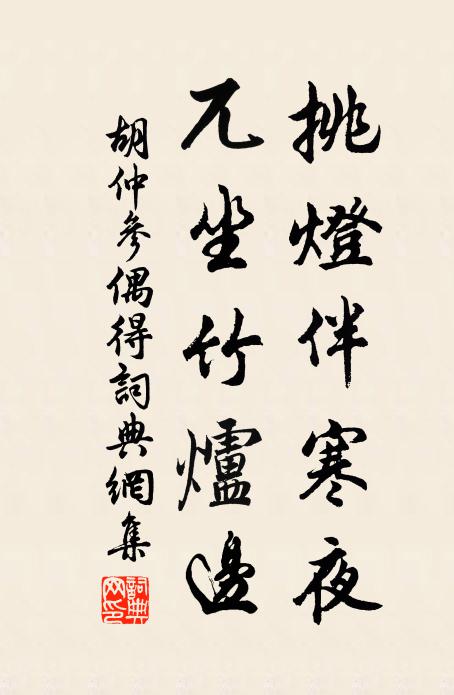 挑燈伴寒夜
兀坐竹爐邊
胡仲參偶得詞典網集
詞典網印